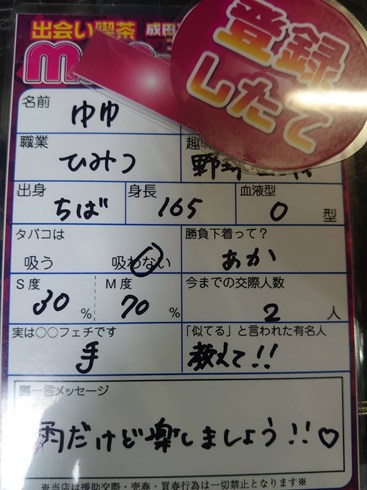 出会い喫茶 成田
登録
したて
名前 ゆゆ
職業 ひみつ 趣
出身 ちば 身長 165 血液型 O 型
タバコは 吸う 吸わない 勝負下着って? あか
S度 30 % M度 70 % 今までの交際人数 2 人
実は○○フェチです 手 「似てる」と言われた有名人 教えて!!
■一言メッセージ
雨だけど楽しましょう!!♡
※当店は援助交際・売春・買春行為は一切禁止となります※